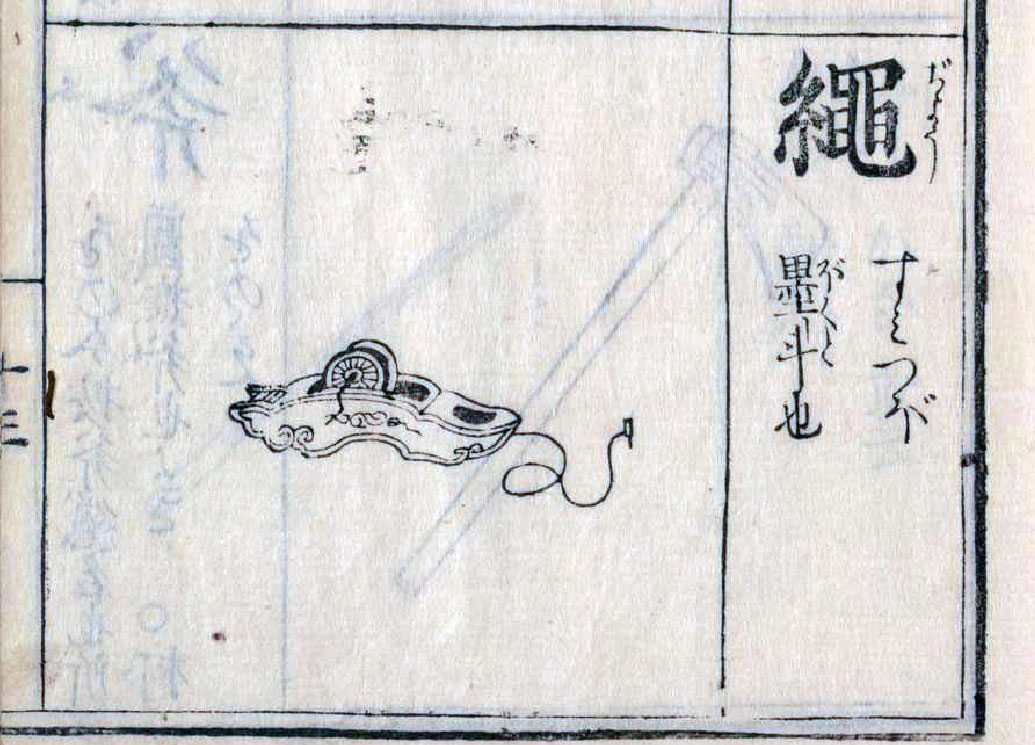 繩
じよう
すみつぼ
墨斗也
ぼくと
十三